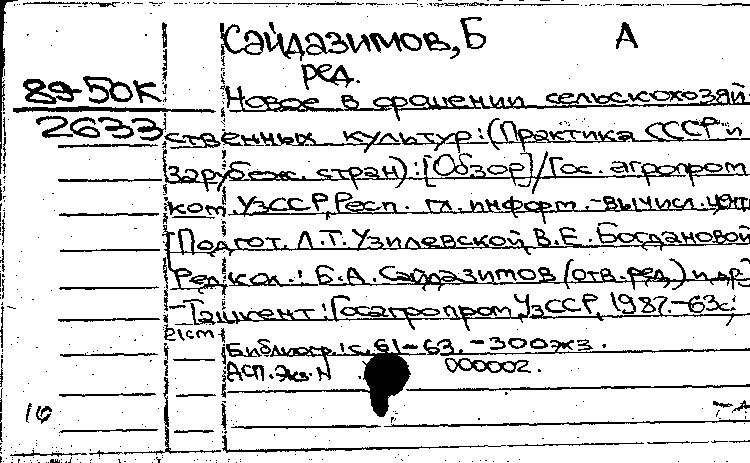 Сайдазимов, Б А
ред.
89-50К
Новое в орошении сельскохозяй
2633
ственных культур: (Практика СССР и
зарубеж. стран): [Обзор]/Гос. агропром.
ком. УзССР, Респ. гл. информ.-вычисл. центр
[Подгот. Л.Т. Узилевской, В.Е. Богдановой
Редкол.: Б.А. Сайдазимов (отв. ред.) и др.]
-Ташкент: Госагропром УзССР, 1987.-63с;
Библиогр.: с. 61-63. -300экз.
Асп. Экз. N 000002.